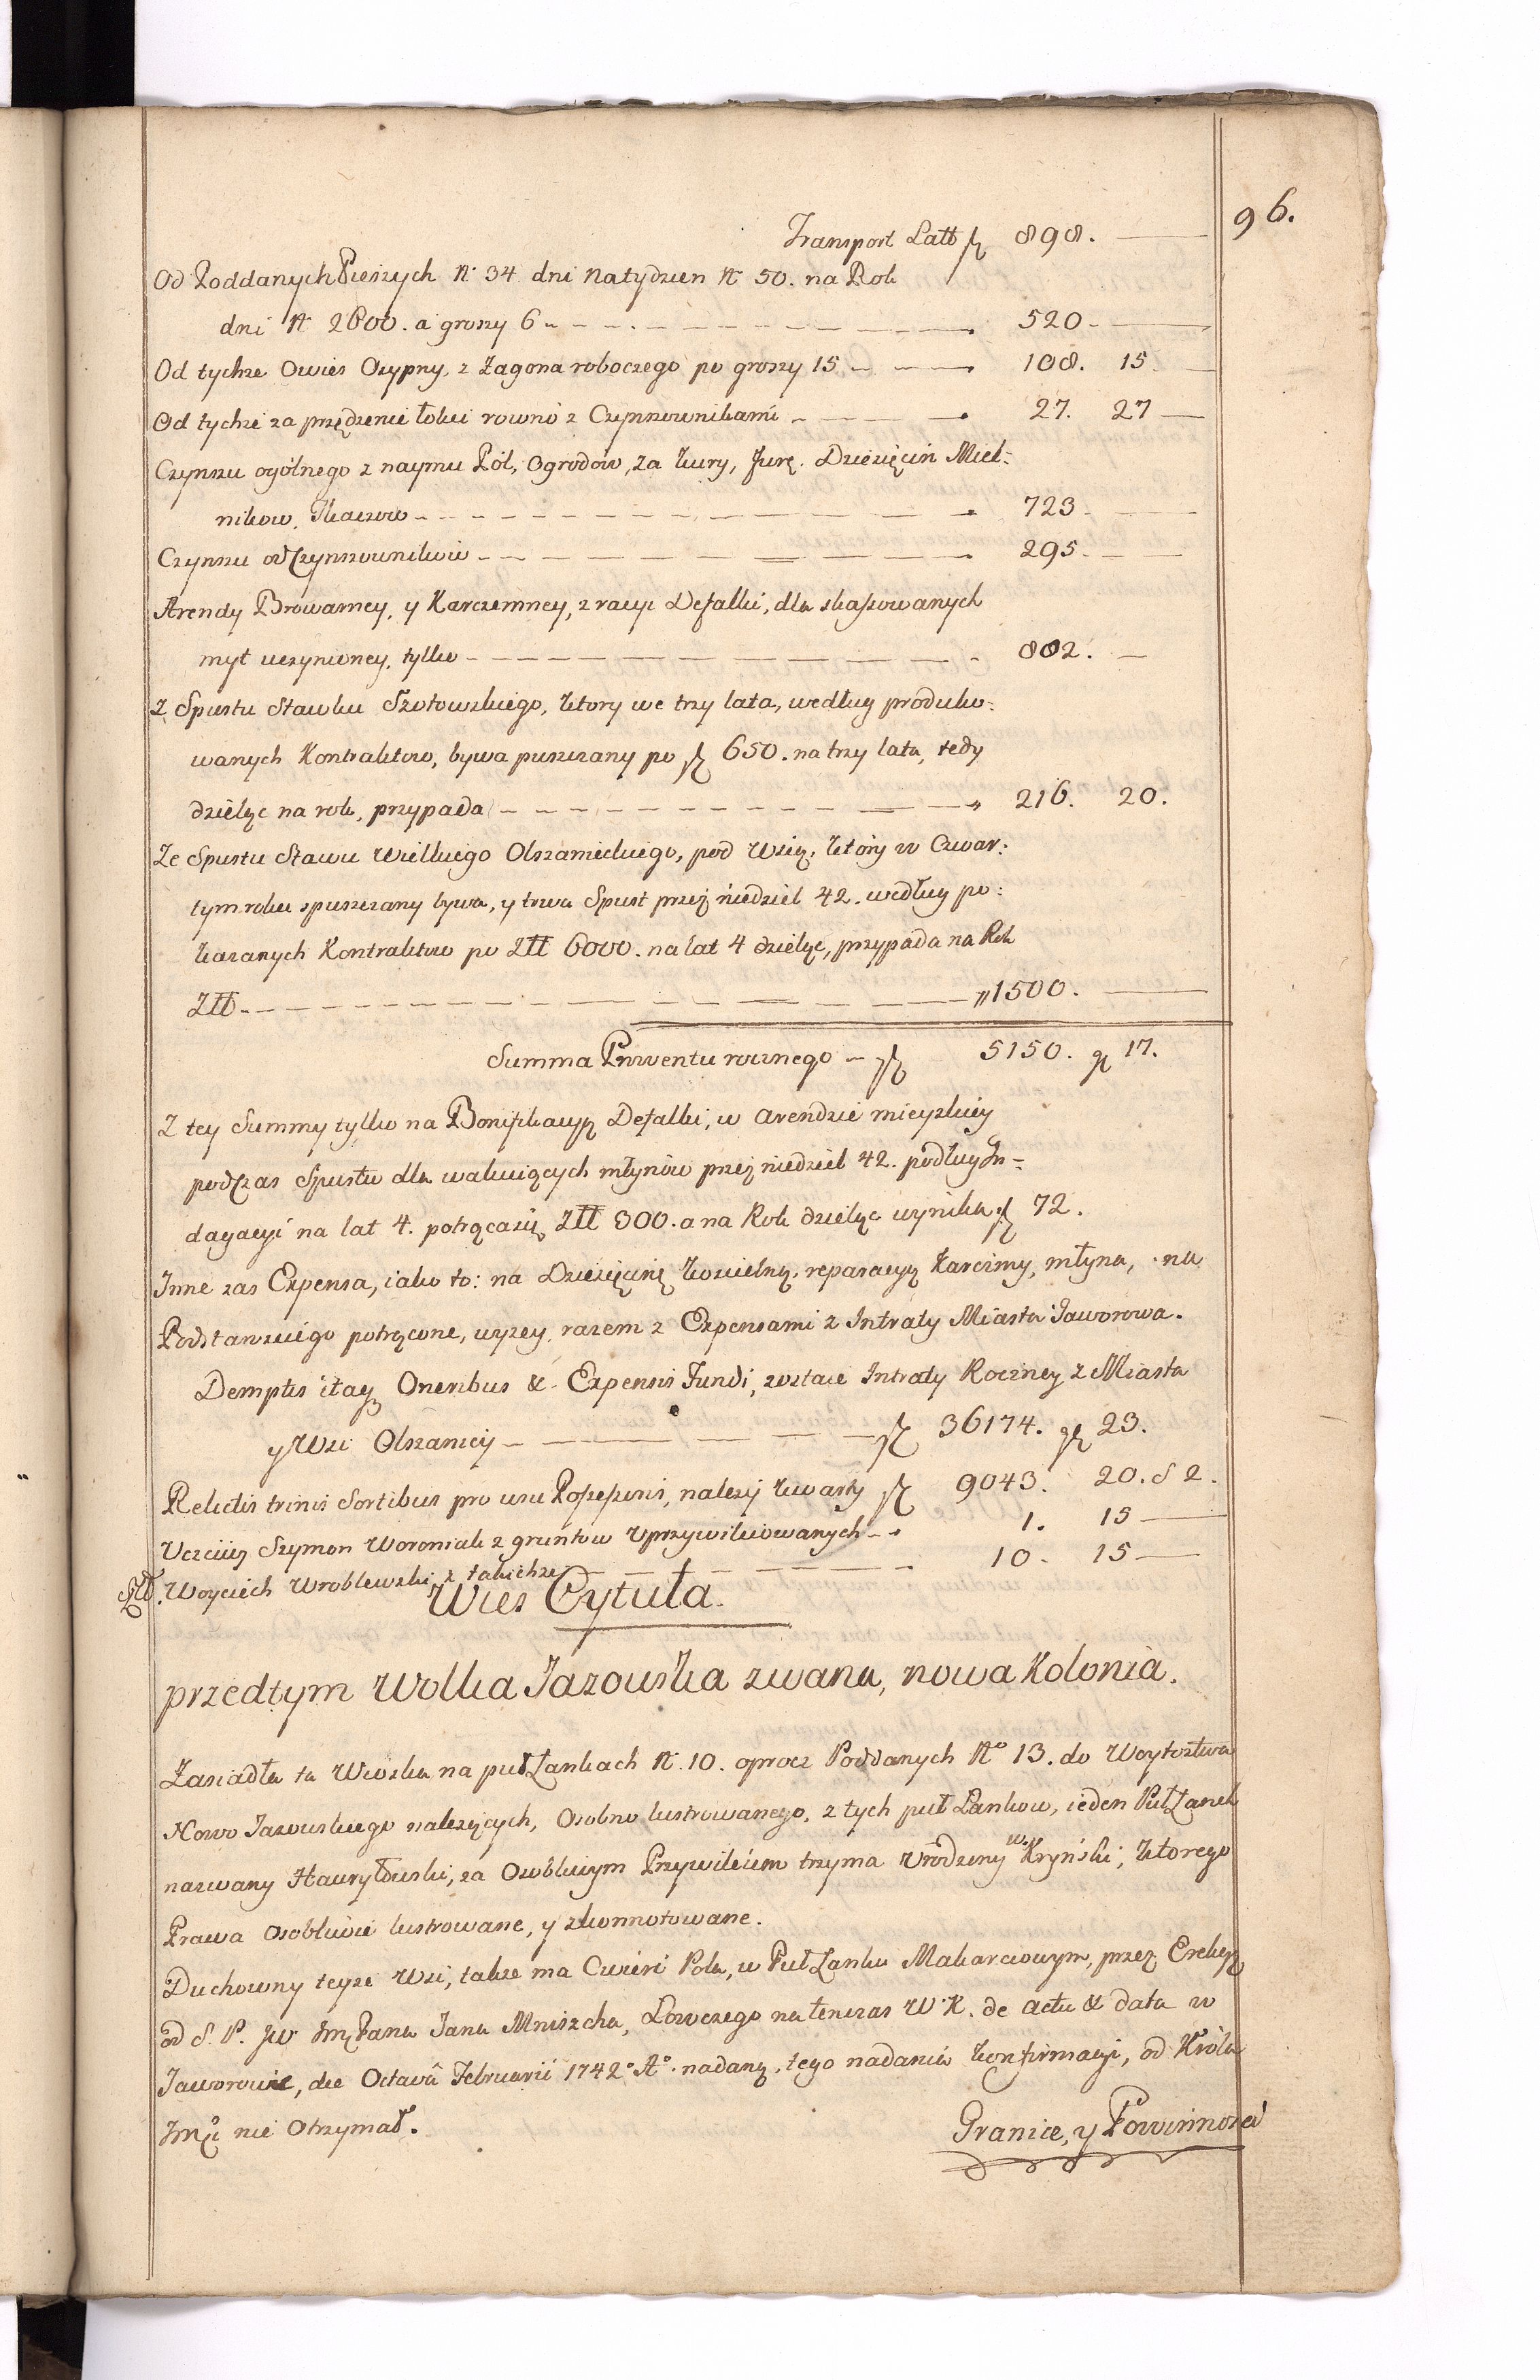 96.
Transport Latt fl 898. —
Od Poddanych Pieszych N 34 dni na tydzien N 50. na Rok
dni N 2600. a groszy 6 - - - 520 - —
Od tychze Owies Osypny, z Zagona roboczego po groszy 15 - - - 108. 15. —
Od tychże za przędzenie łokci rowno z Czynszownikami - - - 27. 27 —
Czynszu ogólnego z naymu Pól, Ogrodow, za kury, Jurę. Dziesięcin Miel:
nikow, Tkaczow - - - 723 - —
Czynszu od Czynszownikow - - - 295 - —
Arendy Browarney, y Karczemney, z racyi Defalki, dla skassowanych
myt uczynioney, tylko - - - 802. —
Z Spustu Stawku Szotowskiego, ktory we trzy lata, według produko:
wanych Kontraktow, bywa puszczany po fl 650. na trzy lata, tedy
dzieląc na rok, przypada - - - 216. 20.
Ze Spustu Stawu Wielkiego Olszanickiego, pod Wsią, ktöry w Czwar:
tym roku spuszczany bywa, y trwa Spust przez niedziel 42. według po:
kazanych Kontraktow po Złł 6000. na lat 4 dzieląc, przypada na Rok
Złł - - - 1500. —
Summa Prowentu rocznego - fl 5150. gl 17.
Z tey Summy tylko na Bonifikacyą Defalki, w arendzie mieyskiey
podczas Spustu dla wakuiących młynów przez niedziel 42. podług In=
dagacyi na lat 4. potrącasię Złł 300. a na Rok dzieląc wynika fl 72.
Inne zas Expensa, iako to: na Dziesięcinę koscielną, reparacyą karczmy, młyna, na
Podstarosciego potrącone, wyzey, razem z Expensami z Intraty Miasta Jaworowa.
Demptis itaq Oneribus & Expensis Fundi, zostaie Intraty Roczney z Miasta
y Wsi Olszanicy - - - fl 36174. gl 23.
Relictis trinis Sortibus pro usu Possessoris, nalezy kwarty fl 9043. 20. S 2.
Uczciwy Szymon Woroniak z gruntow Uprzywiliowanych - 1. 15 —
Szl. Woyciech Wroblewski z takichze - - - 10 - 15 —
Wies Cytula.
przedtym Wolka Jazowska zwana, nowa Kolonia.
Zasiadła ta Wioska na puł Łankach N. 10. oprocz Poddanych No 13. do Woytostwa
Nowo Jazowskiego nalezących, Osobno lustrowanego, z tych puł Łankow, ieden Puł Łanek
nazwany Hawryłowski, za Osobliwym Przywileiem trzyma Urodzony W. Kryński, ktorego
Prawa Osobliwie lustrowane, y zkonnotowane.
Duchowny teyze Wsi, takze ma Cwierć Pola, w Puł Łanku Makarciowym, przez Erekcyą
od S. P. JW Jmę Pana Jana Mniszcha, Łowczego na tenczas W. K. de actu & data w
Jaworowie, die Octavâ Februarii 1742o Ao nadaną, tego nadania konfirmacyi, od Króla
Jmci nie Otrzymał.
Granice, y Powinnosci